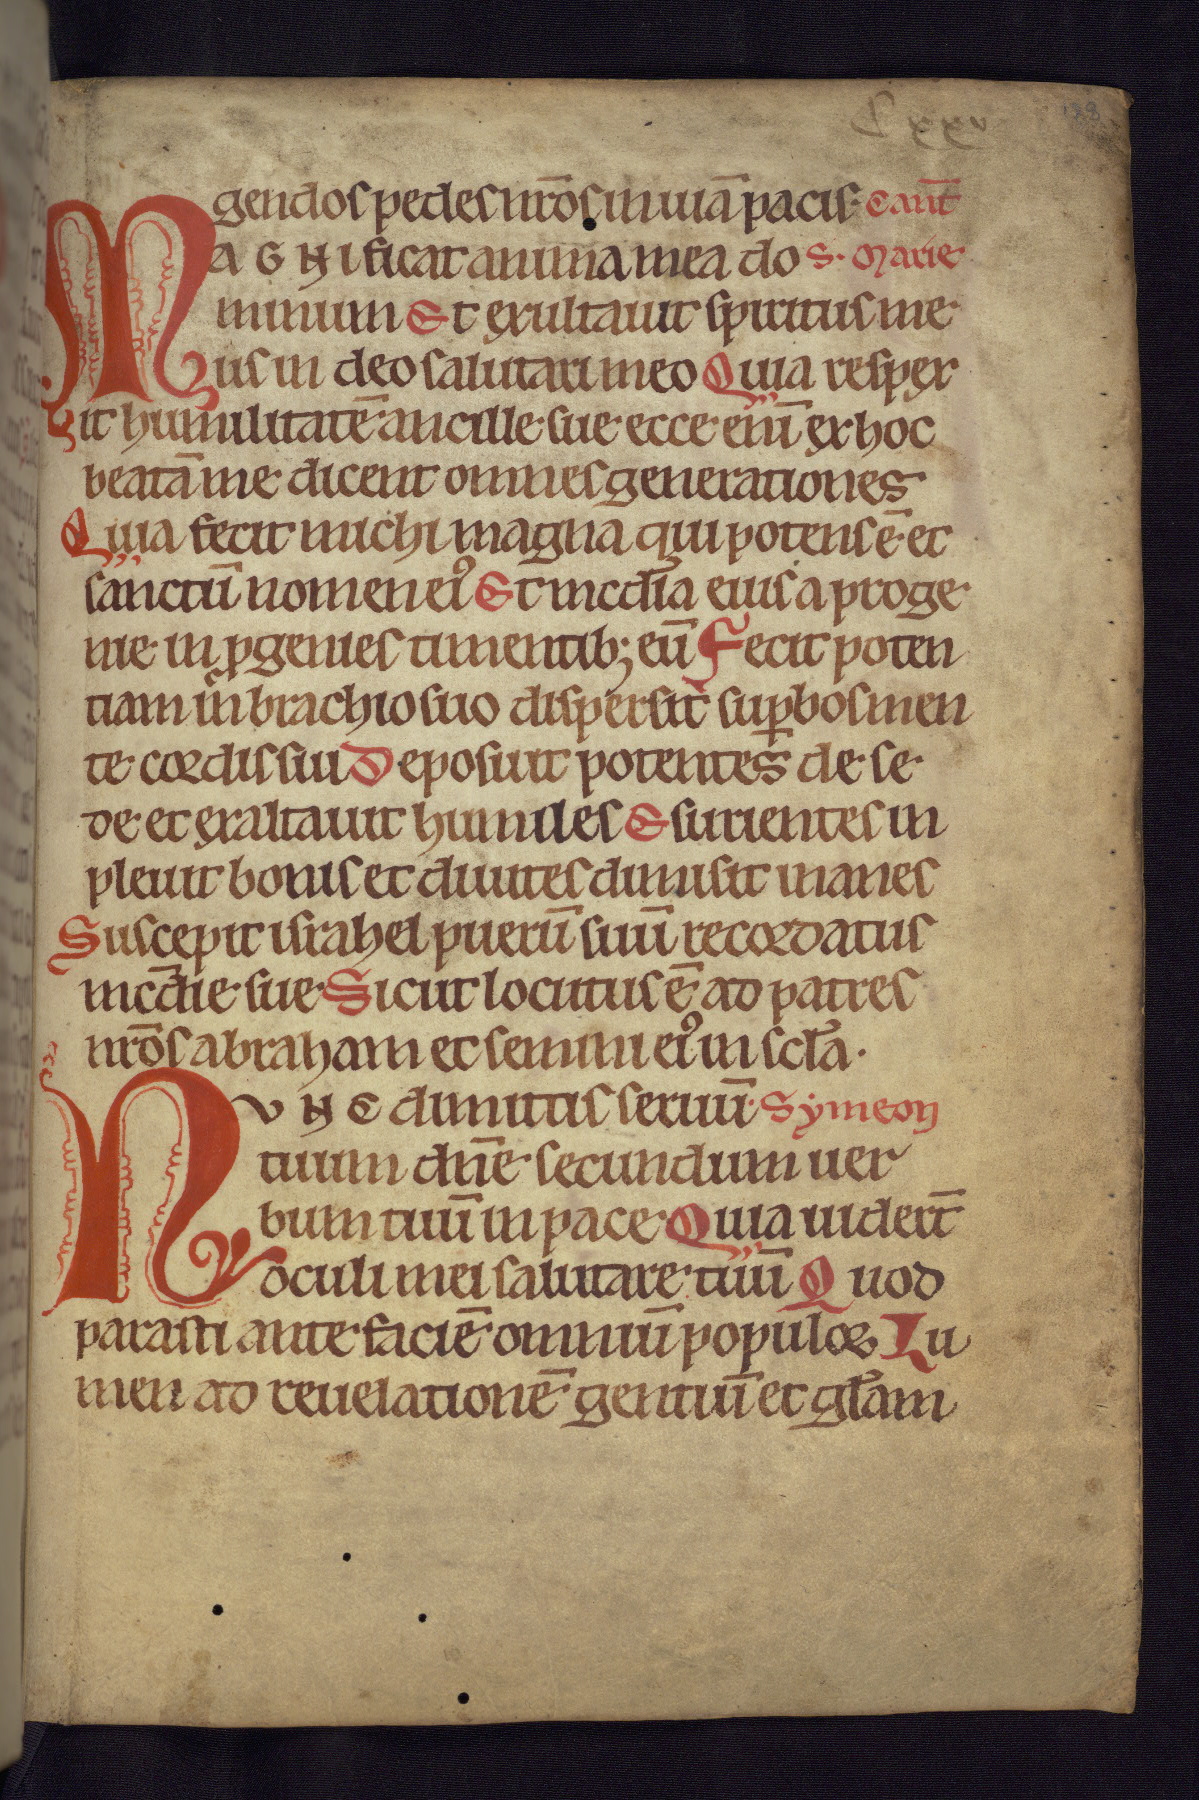 Cxxv 128
gendos pedes nr̄os in uiā pacis. Cant̄
MAGNIficat anima mea do S. Marie
minum Et exultauit spiritus me
us in deo salutari meo Quia respex
it humilitatē ancille sue ecce enī ex hoc
beatā me dicent omnes generationes
Quia fecit michi magna qui potens ē et
sanctū nomen eiꝰ Et mcd̄ia eius a proge
nie in ꝓgenies timentib; eū Fecit poten
tiam in brachio suo dispersit suꝑbos men
te cordis sui Deposuit potentes de se
de et exaltauit humiles Esurientes in
pleuit bonis et diuites dimisit inanes
Suscepit israhel puerū suū recordatus
mcd̄ie sue Sicut locutus ē ad patres
nr̄os abraham et semini eiꝰ in scl̄a.
NVNC dimittis seruū Symeon
tuum dn̄e secundum uer
bum tuū in pace Quia uidert̄
oculi mei salutare tuū Quod
parasti ante faciē omniū populoꝝ Lu
men ad reuelationē gentiū et gl̄am